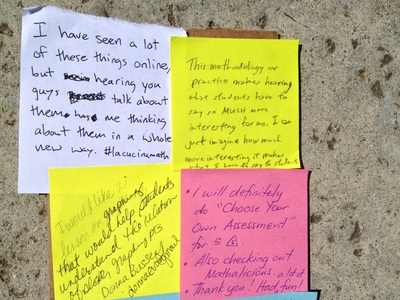 I have seen a lot
of these things online,
but hearing you
guys talk about
them has me thinking
about them in a whole
new way. #lacucinamath
This methodology or
practice makes hearing
what students have to
say so MUCH more
interesting for me. I can
just imagine how much
more interesting it makes
what I have to say to students
I would like a
lesson on graphing
that would help students
understand the
explore graphing pts
Donna
• I will definitely
do "Choose Your
Own Assessment"
for
• Also checking out
Mathalicious. a lot of
• Thank you! Had fun!